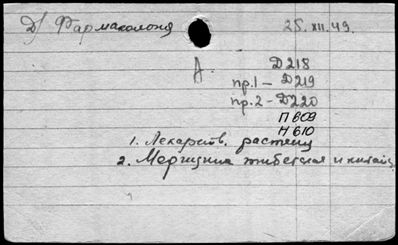 Д) Фармакология 25.XII.49.
А. Д218
пр.1 – Д219
пр.2 – Д220
П 809
Н 610
1. Лекарств. растен
2. Медицина тибетская и китайс.